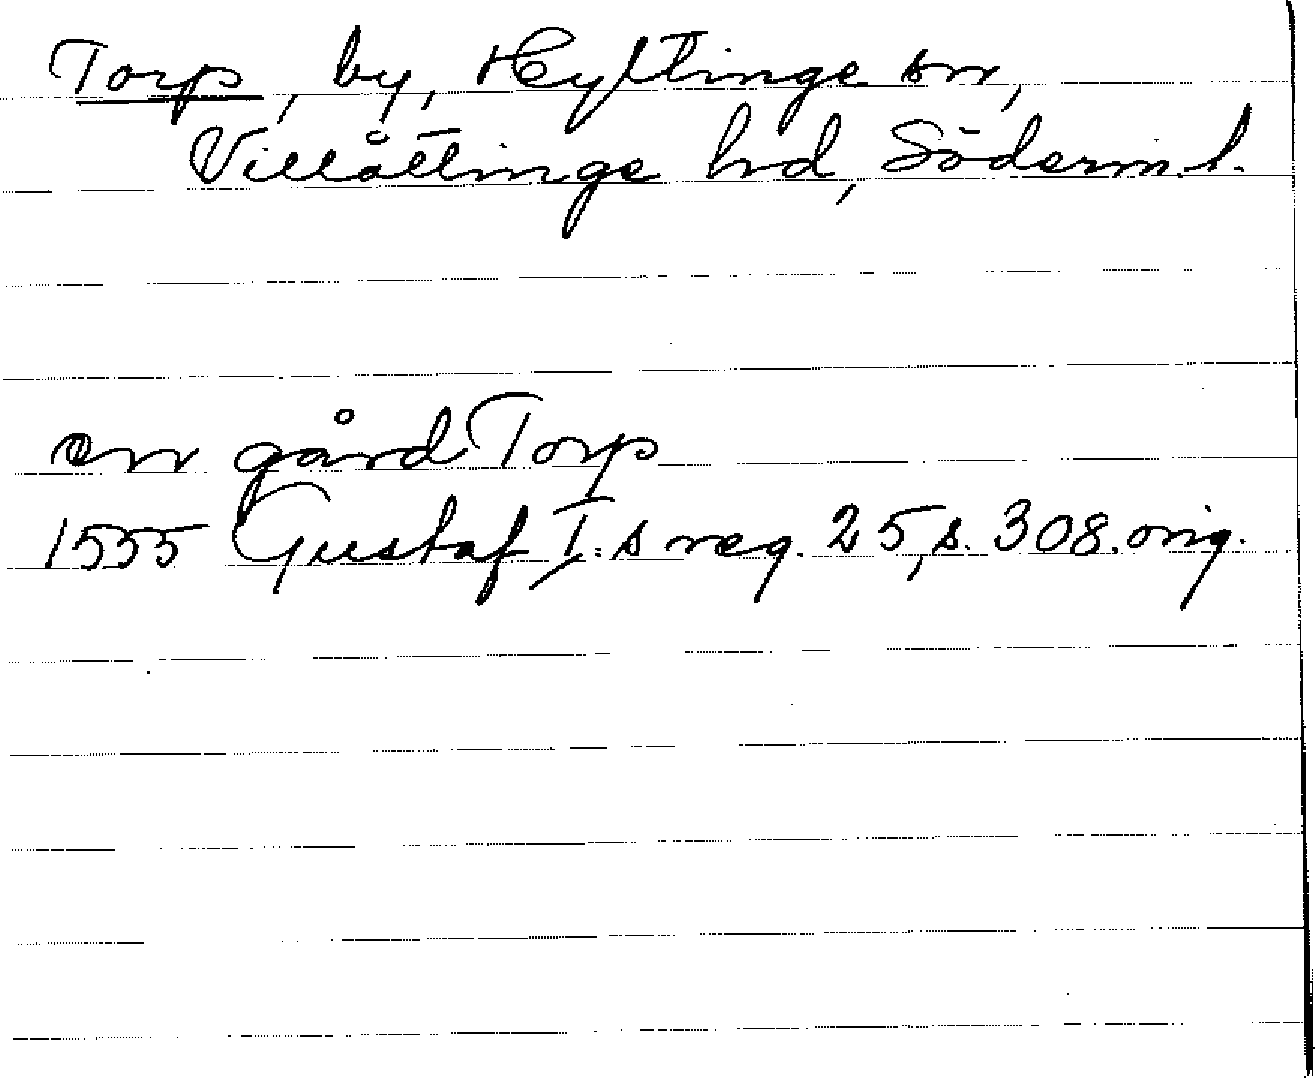 Torp, by, Hyltinge sn,
Villåttinge hd, Söderm.l.
en gård Torp
1555 Gustaf I:s reg. 25, s. 308. orig.